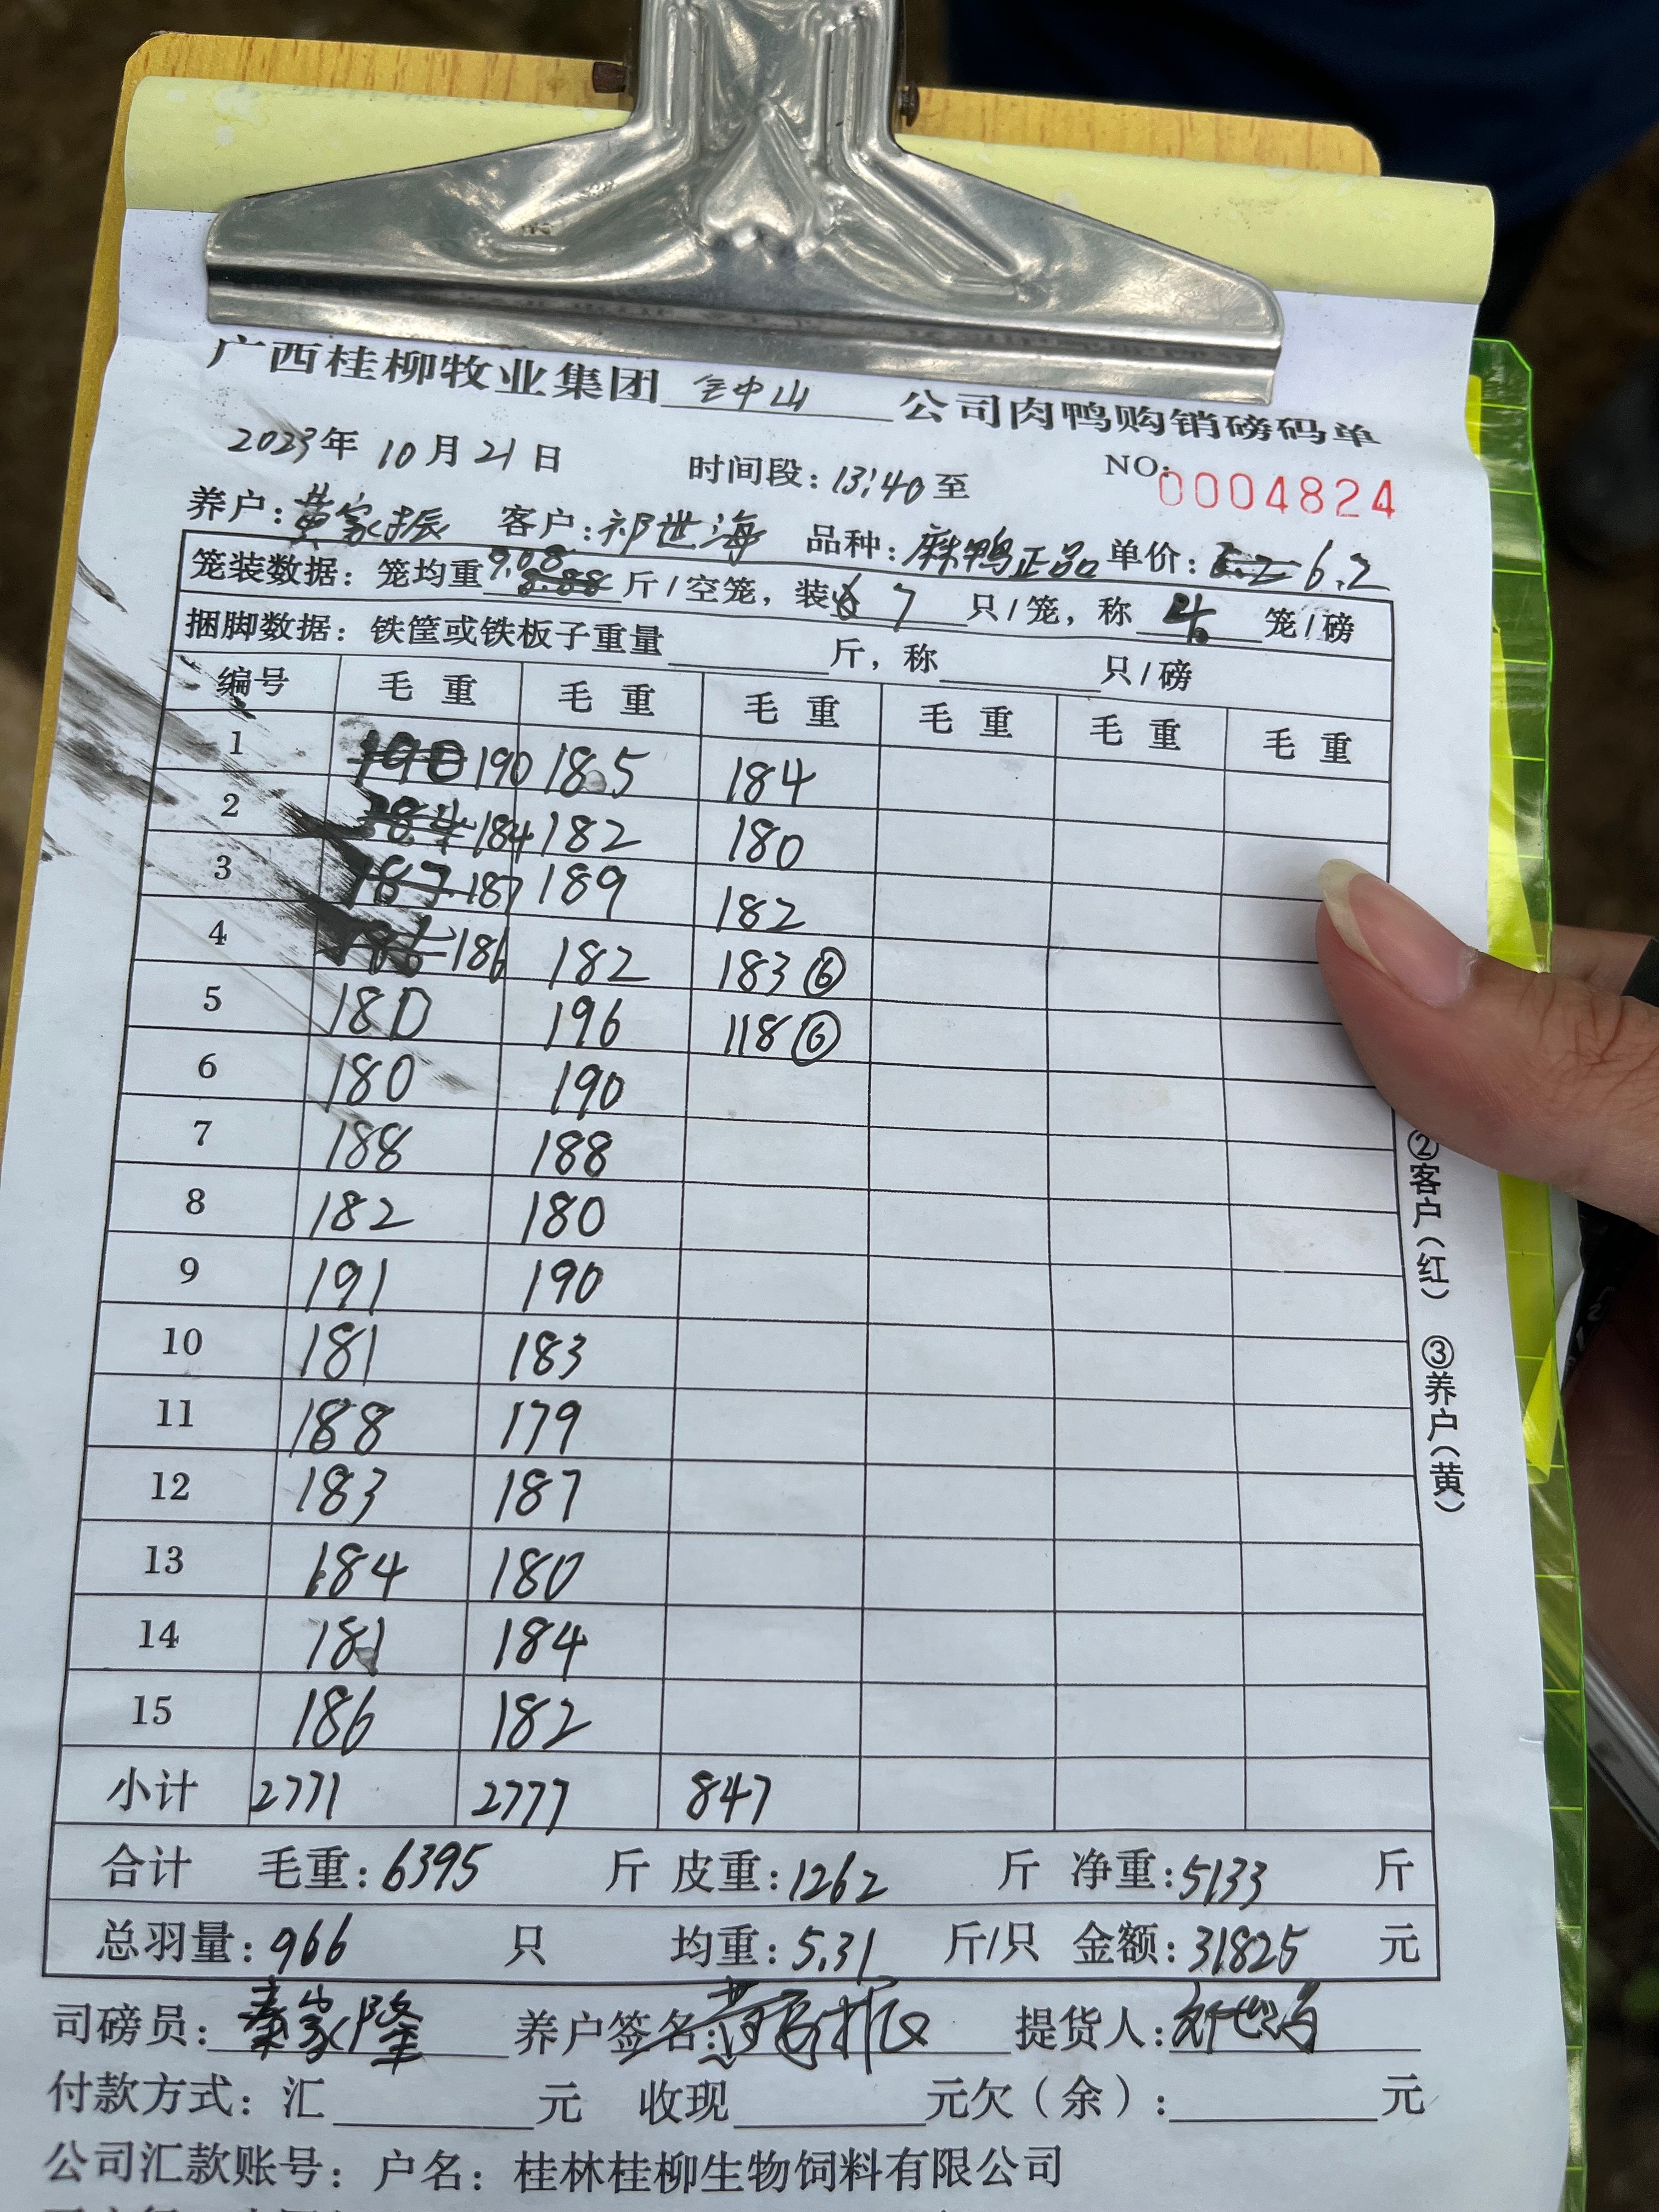 广西桂柳牧业集团 钟山 公司肉鸭购销磅码单
2023年 10月21日 时间段：13:40至 NO:0004824
养户：黄家振 客户：祁世海 品种：麻鸭正品 单价：6.2
笼装数据：笼均重9.08斤/空笼，装7只/笼，称4笼/磅
捆脚数据：铁筐或铁板子重量 斤，称 只/磅
编号 毛重 毛重 毛重 毛重 毛重 毛重
1 190 185 184
2 184 182 180
3 187 189 182
4 186 182 183⑥
5 180 196 118⑥
6 180 190
7 188 188
8 182 180
9 191 190
10 181 183
11 188 179
12 183 187
13 184 180
14 181 184
15 186 182
小计 2771 2777 847
合计 毛重：6395 斤 皮重：1262 斤 净重：5133 斤
总羽量：966 只 均重：5.31 斤/只 金额：31825 元
司磅员：秦家隆 养户签名：黄家振 提货人：祁世海
付款方式：汇 元 收现 元欠（余）： 元
公司汇款账号：户名：桂林桂柳生物饲料有限公司
②客户（红） ③养户（黄）